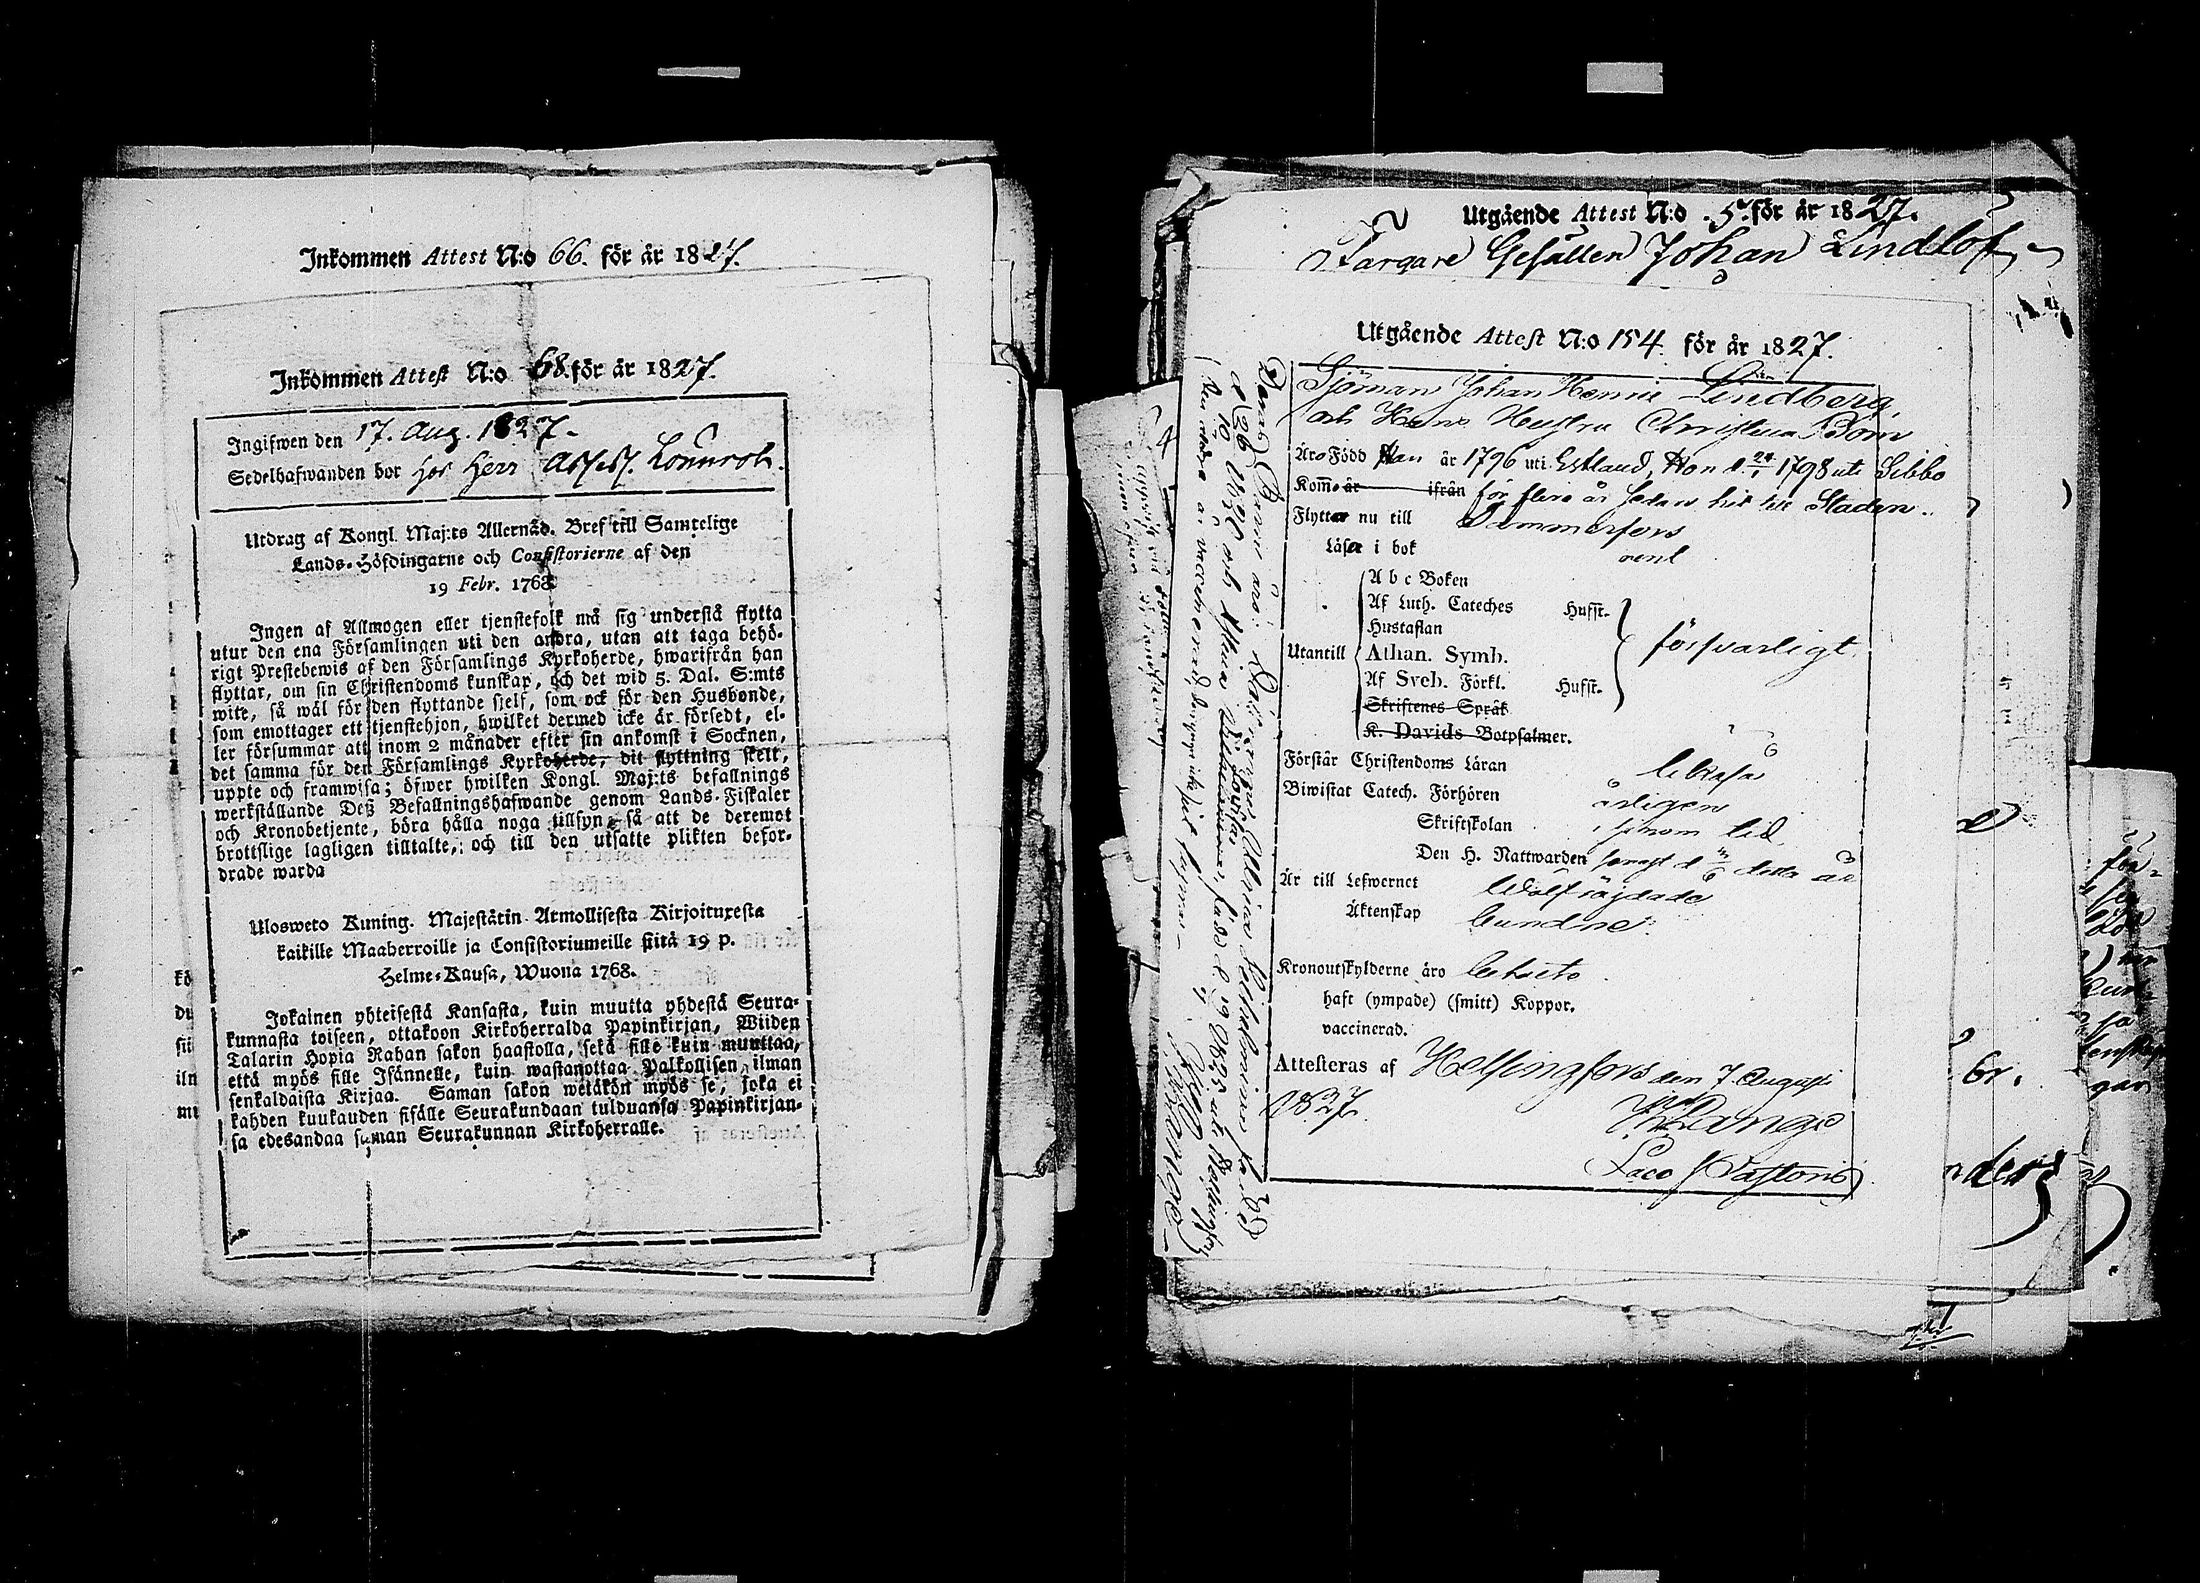 Inkommen Attest N:o 66. för år 1827.
Inkommen Attest N:o 68. för år 1827.
Ingifwen den 17. Aug. 1827.
Sedelhafwanden bor hos Herr Assess. Lönnroth.
Utdrag af Kongl. Maj:ts Allernåd. Bref till Samtelige
Lands-Höfdingarne och Consistorierne af den
19 Febr. 1768
Ingen af Allmogen eller tjenstefolk må sig understå flytta
utur den ena Församlingen uti den andra, utan att taga behö-
rigt Prestebewis af den Församlings Kyrkoherde, hwarifrån han
flyttar, om sin Christendoms kunskap, och det wid 5. Dal. S:mts
wite, så wäl för den flyttande sjelf, som ock för den Husbonde,
som emottager ett tjenstehjon, hwilket dermed icke är försedt, el-
ler försummar att inom 2 månader efter sin ankomst i Socknen,
det samma för den Församlings Kyrkoherde, dit flyttning skett,
uppte och framwisa; öfwer hwilken Kongl. Maj:ts befallnings
werkställande Deß Befallningshafwande genom Lands-Fiskaler
och Kronobetjente, böra hålla noga tillsyn, så att de deremot
brottslige lagligen tilltalte, och till den utsatte plikten befor-
drade warda
Ulosweto Kuning. Majestätin Armollisesta Kirjoituxesta
kaikille Maaherroille ja Consistoriumeille siitä 19 p.
Helme-Kausa, Wuona 1768.
Jokainen yhteisestä Kansasta, kuin muutta yhdestä Seura-
kunnasta toiseen, ottakoon Kirkoherralda Papinkirjan, Wiiden
Talarin Hopia Rahan sakon haastolla, sekä sille kuin muuttaa,
että myös sille Isännelle, kuin wastanottaa Palkollisen, ilman
senkaldaista Kirjaa. Saman sakon wetäkön myös se, joka ei
kahden kuukauden sisälle Seurakundaan tulduansa Papinkirjan-
sa edesandaa saman Seurakunnan Kirkoherralle.
Utgående Attest N:o 5. för år 1827.
Färgare Gesällen Johan Lindlöf
Utgående Attest N:o 154. för år 1827.
Sjöman Johan Hennie Lindberg,
och Hans Hustru Christina Bom
Äro Född Han år 1796 uti Estland, Hon d. 24/1 1798 uti Sibbo
Kom̃o år ifrån för flera år sedan hit till Staden.
Flyttar nu till Tammerfors
Läser i bok rent
Utantill
A b c Boken
Af Luth. Cateches Hufst.
Hustaflan
Athan. Symb.
Af Sveb. Förkl. Hufst.
Skriftenes Språk
K. Davids Botpsalmer.
försvarligt
Förstår Christendoms Läran likaså
Biwistat Catech. Förhören årligen
Skriftskolan i sinom tid
Den H. Nattwarden senast d. detta år
Är till Lefwernet Wälfrägdade
Äktenskap bundne
Kronoutskylderne äro
haft (ympade) (smitt) Koppor.
vaccinerad.
Attesteras af Helsingfors den 7 Augusti
1827.
Lange
Loco Pastoris